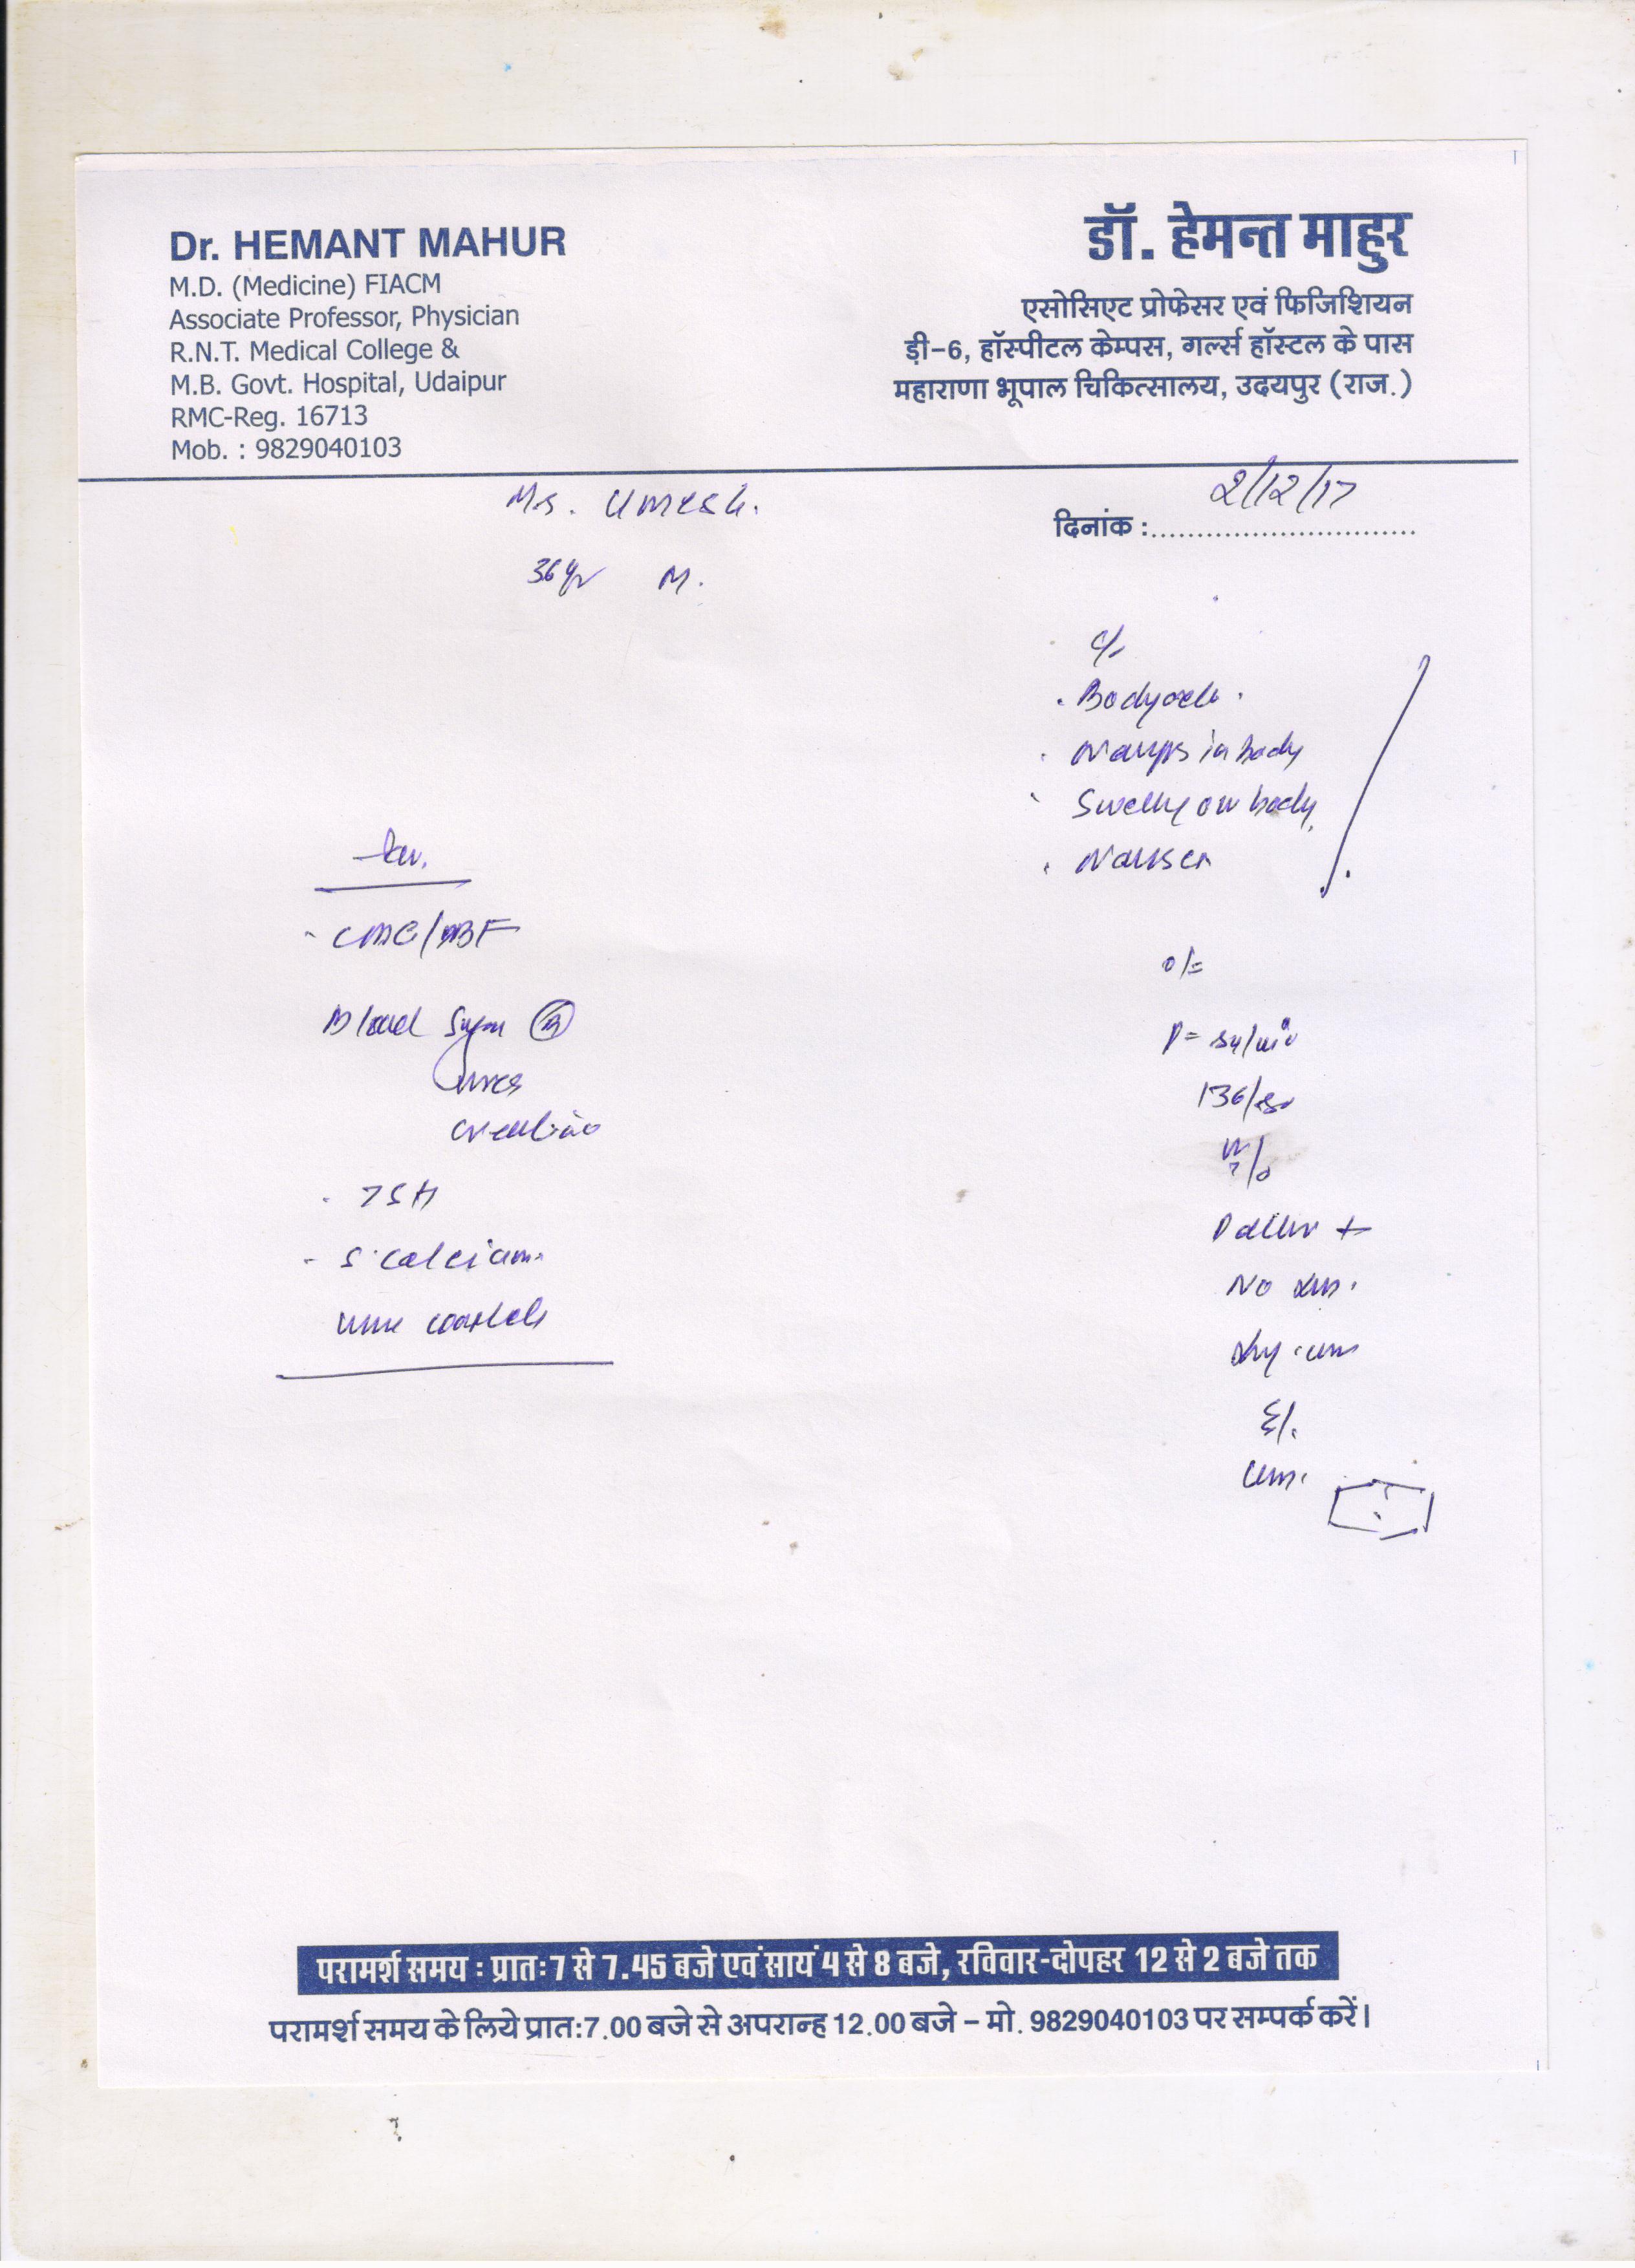 Dr. HEMANT MAHUR
M.D. (Medicine) FIACM
Associate Professor, Physician
R.N.T. Medical College &
M.B. Govt. Hospital, Udaipur
RMC-Reg. 16713
Mob. : 9829040103
डॉ. हेमन्त माहुर
एसोसिएट प्रोफेसर एवं फिजिशियन
ड़ी-6, हॉस्पीटल केम्पस, गर्ल्स हॉस्टल के पास
महाराणा भूपाल चिकित्सालय, उदयपुर (राज.)
Mr. Umesh.
दिनांक : 2/12/17
36yr M.
C/o
Bodyache.
Cramps in body
Swelling on body
Nausea
Inv.
CBC/PBF
Blood Sugar (R)
Urea
Creatinine
TSH
S. Calcium
Urine complete
O/E
P = 84/min
136/80
Pallor +
No
परामर्श समय : प्रातः 7 से 7.45 बजे एवं सायं 4 से 8 बजे, रविवार-दोपहर 12 से 2 बजे तक
परामर्श समय के लिये प्रातः 7.00 बजे से अपरान्ह 12.00 बजे – मो. 9829040103 पर सम्पर्क करें।